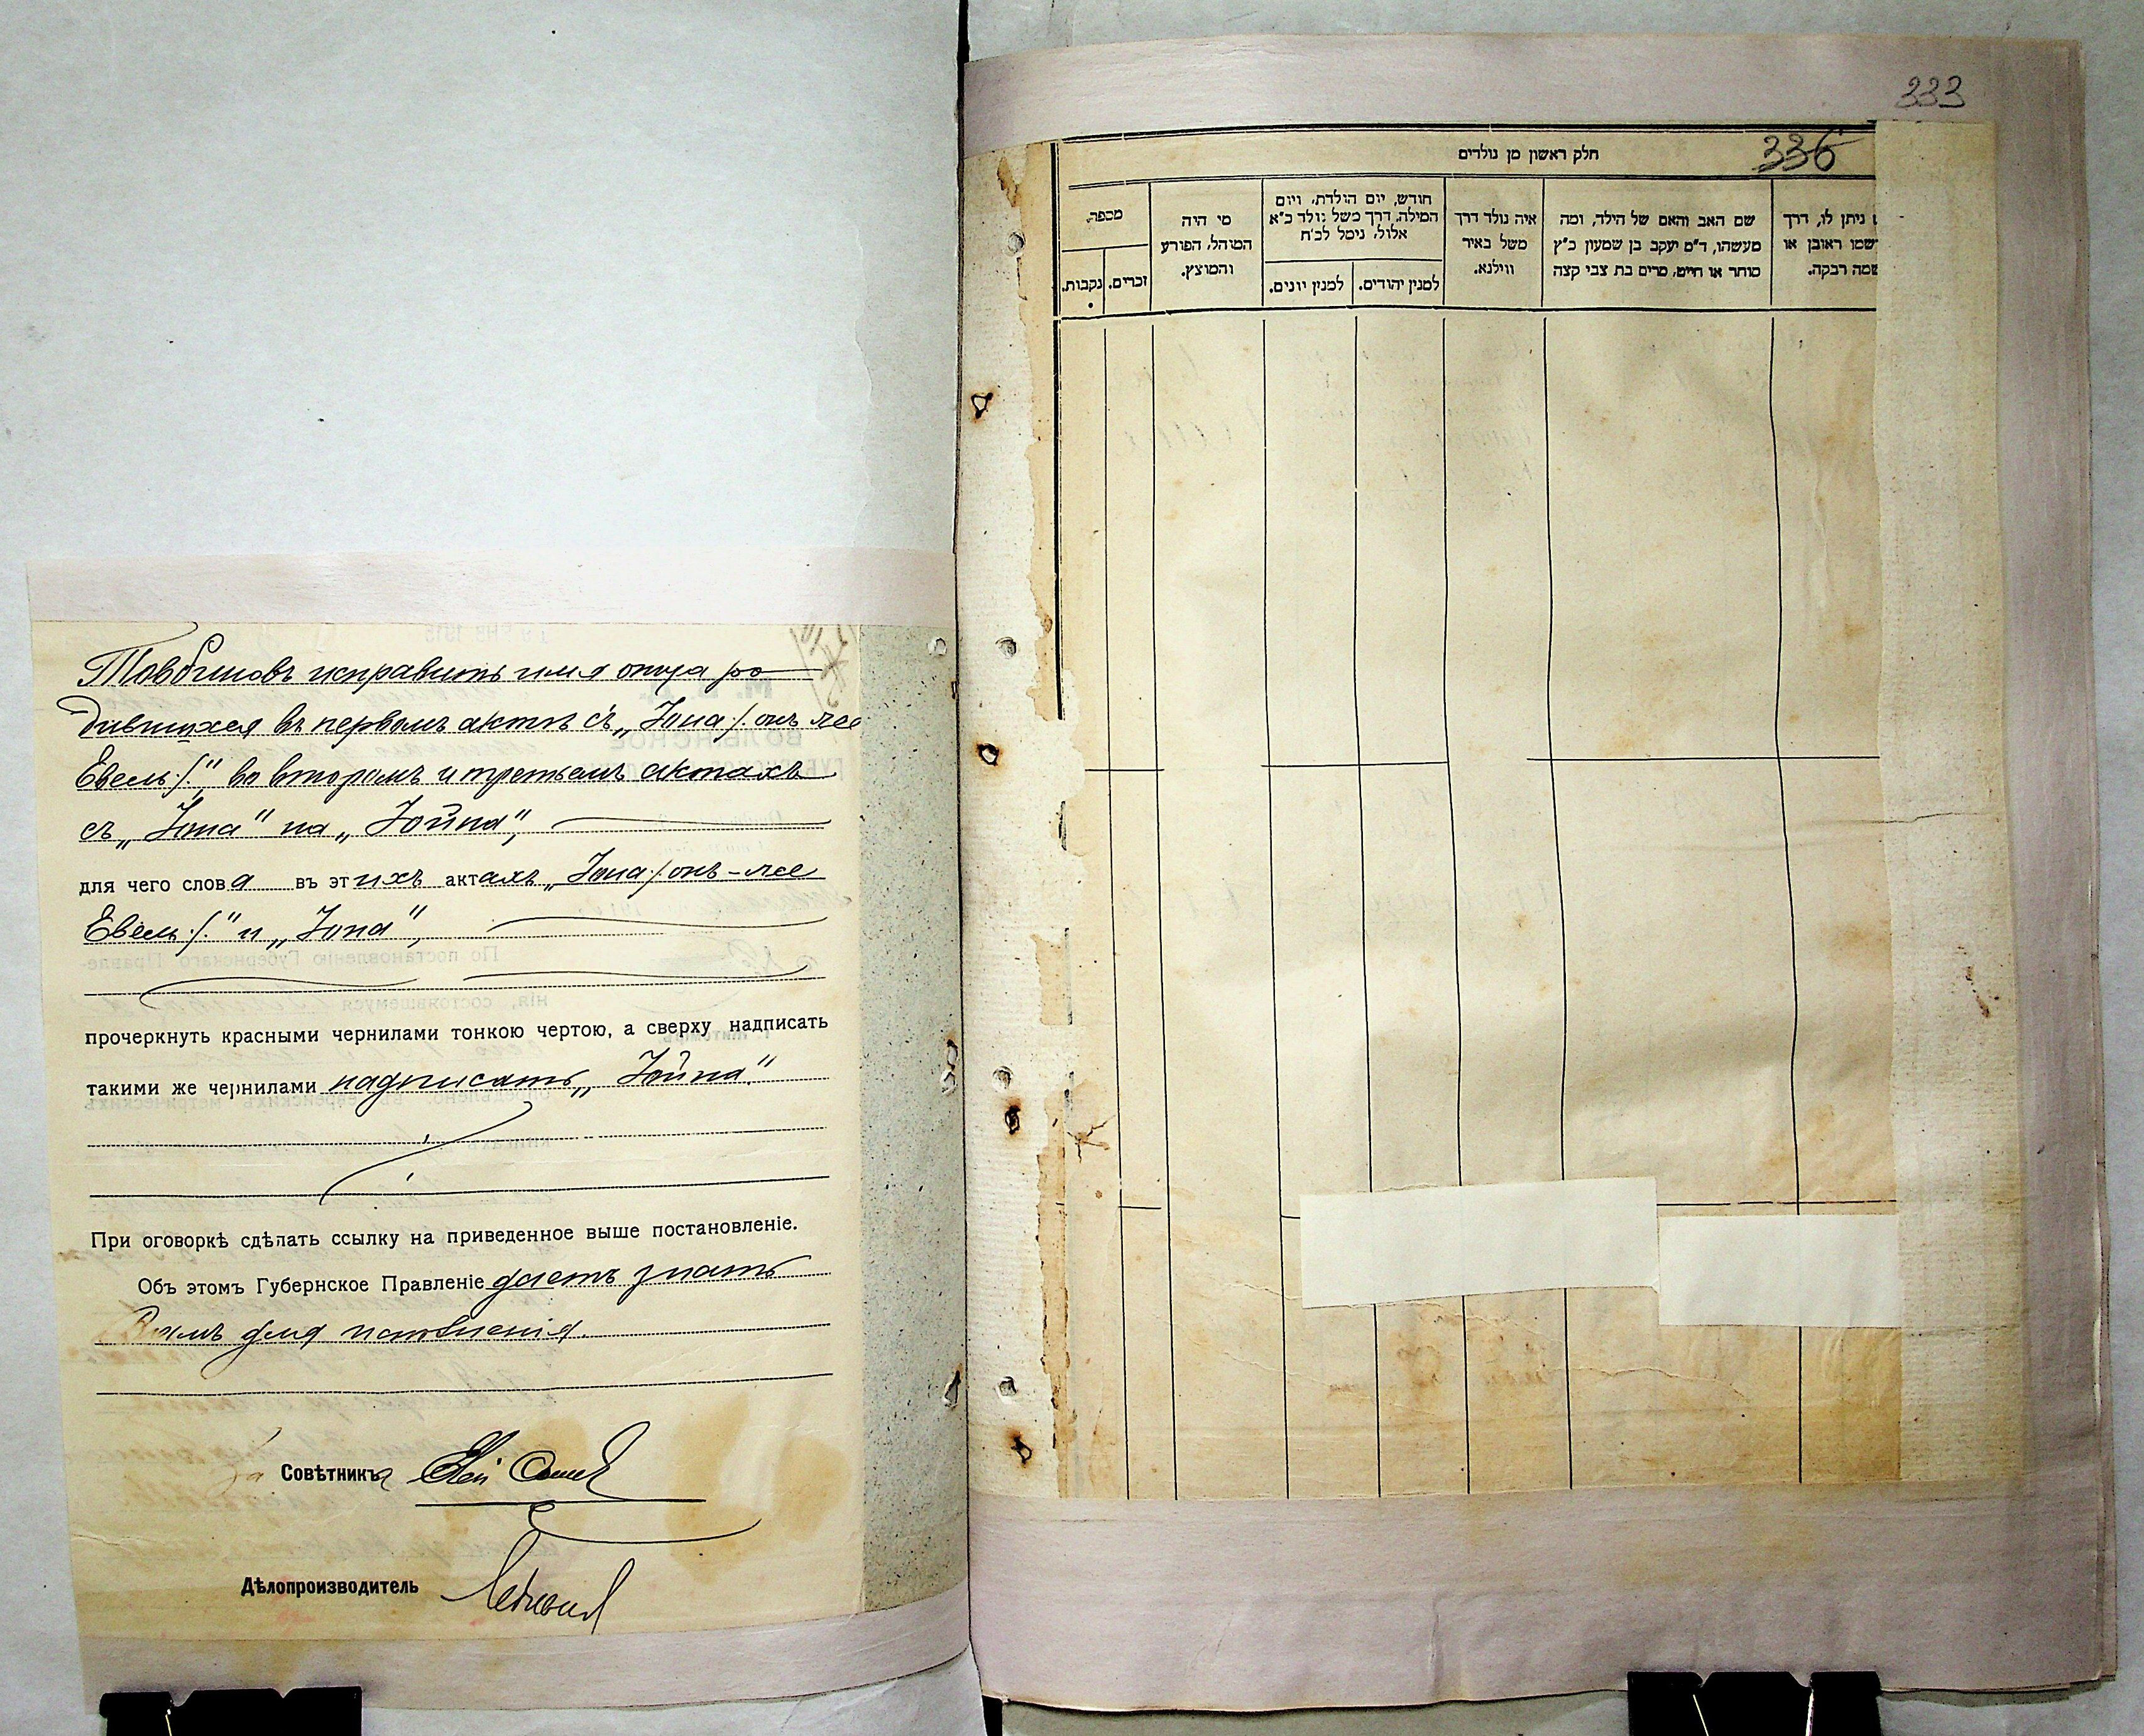 Товбиновъ исправить имя отца ро-
дившихся въ первомъ актѣ съ „Iона /: онъ же
Евель :/", во второмъ и третьемъ актахъ
съ „Iона" на „Iойна",
для чего слова въ этихъ актахъ „Iона /: онъ-же
Евель :/" и „Iона",
прочеркнуть красными чернилами тонкою чертою, а сверху надписать
такими же чернилами надписать „Iойна".
При оговоркѣ сдѣлать ссылку на приведенное выше постановленіе.
Объ этомъ Губернское Правленіе даетъ знать
Вамъ для исполненія.
За Совѣтника
Дѣлопроизводитель
333
336
חלק ראשון מן נולדים
ניתן לו, דרך
שמו ראובן או
שמה רבקה.
שם האב והאם של הילד, ומה
מעשהו, ד"מ יעקב בן שמעון כ"ץ
סוחר או חייט, מרים בת צבי קצה
איה נולד דרך
משל באיר
ווילנא.
חודש, יום הולדת, ויום
המילה, דרך משל נולד כ"א
אלול, נימל לכ"ח
למנין יהודים.
למנין יונים.
מי היה
המוהל, הפורע
והמוצץ.
מספר.
זכרים.
נקבות.